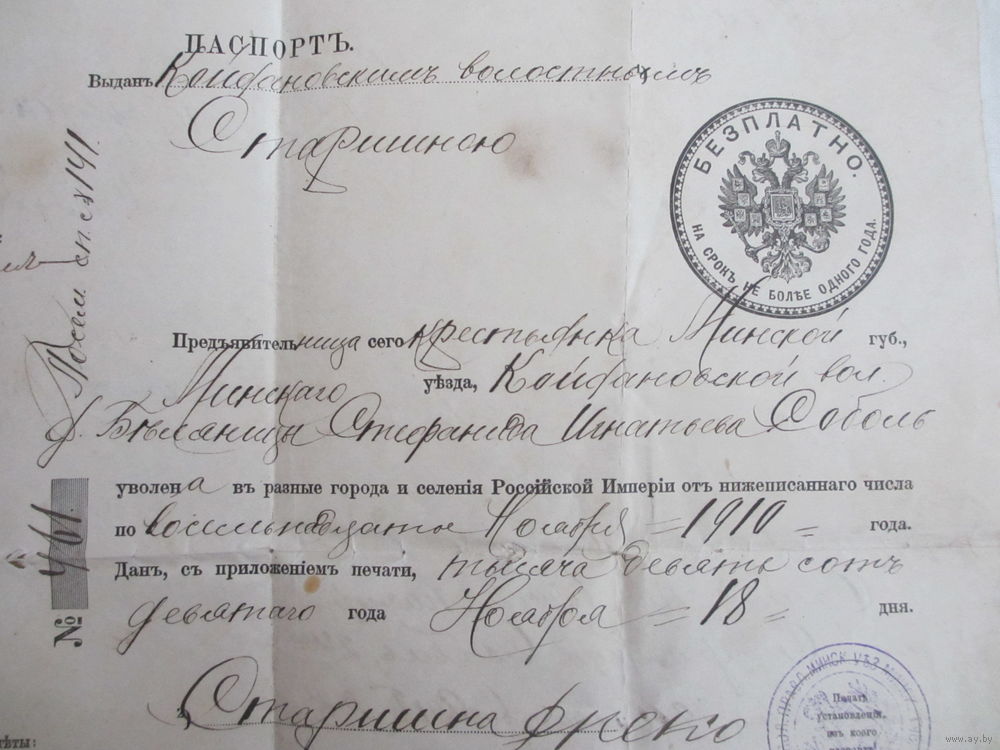 ПАСПОРТЪ.
Выданъ Койдановскимъ волостнымъ
Старшиною
БЕЗПЛАТНО.
НА СРОКЪ НЕ БОЛѢЕ ОДНОГО ГОДА.
Посем. сп. № 141.
Предъявительница сего крестьянка Минской губ.,
Минскаго уѣзда, Койдановской вол.
д. Бѣляницы Стефанида Игнатьева Соболь
уволена въ разные города и селенія Россійской Имперіи отъ нижеписаннаго числа
по восемьнадцатое Ноября 1910 года.
Данъ, съ приложеніемъ печати, тысяча девять сотъ
девятаго года Ноября 18 дня.
№ 461.
Старшина
Печать
установленія,
изъ коего
www.ay.by